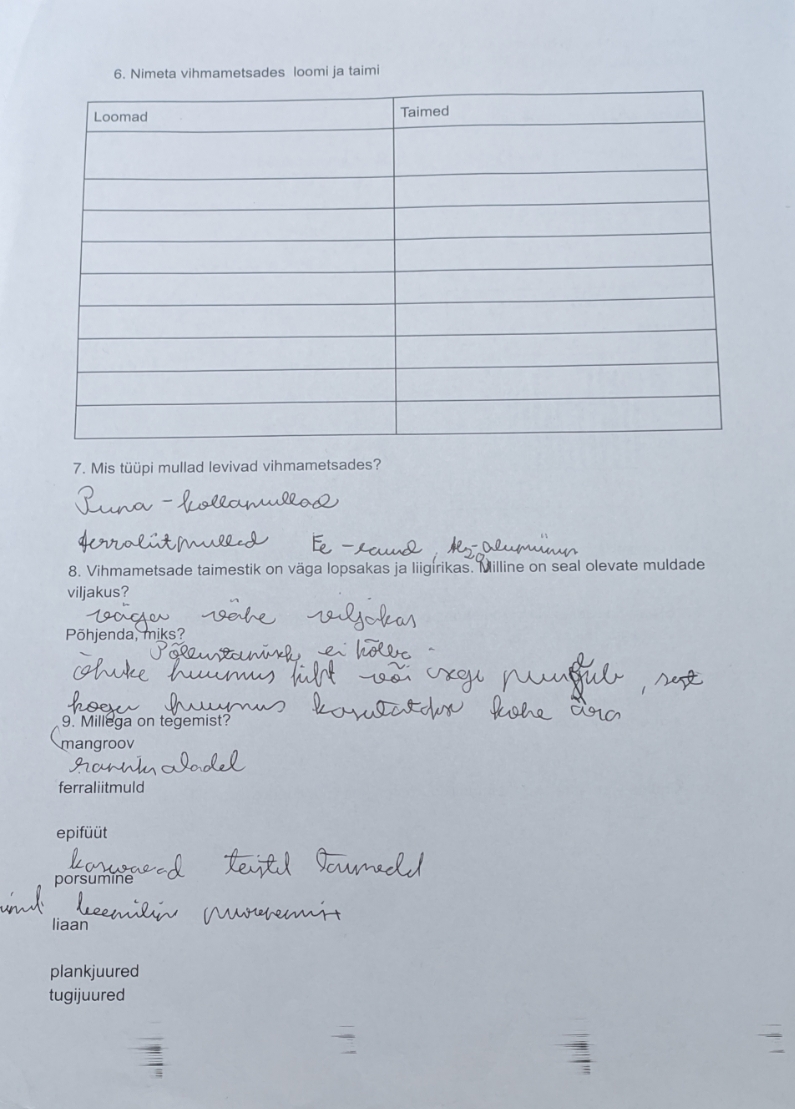 6. Nimeta vihmametsades loomi ja taimi
Loomad
Taimed
7. Mis tüüpi mullad levivad vihmametsades?
Puna - kollamullad
ferraliitmullad Fe - raud, alumiinium
8. Vihmametsade taimestik on väga lopsakas ja liigirikas. Milline on seal olevate muldade
viljakus?
väga vähe viljakas
Põhjenda, miks?
Põllumajandus ei kõlba
õhuke huumus kiht või isegi puudub, sest
kogu huumus kasutatakse kohe ära
9. Millega on tegemist?
mangroov
ranniku aladel
ferraliitmuld
epifüüt
kasvavad teistel taimedel
porsumine
keemiline murenemine
liaan
plankjuured
tugijuured